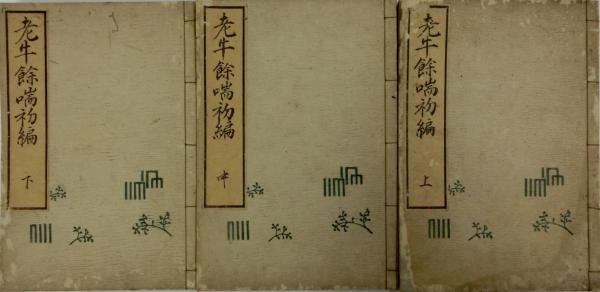 老牛餘喘初編 上
老牛餘喘初編 中
老牛餘喘初編 下